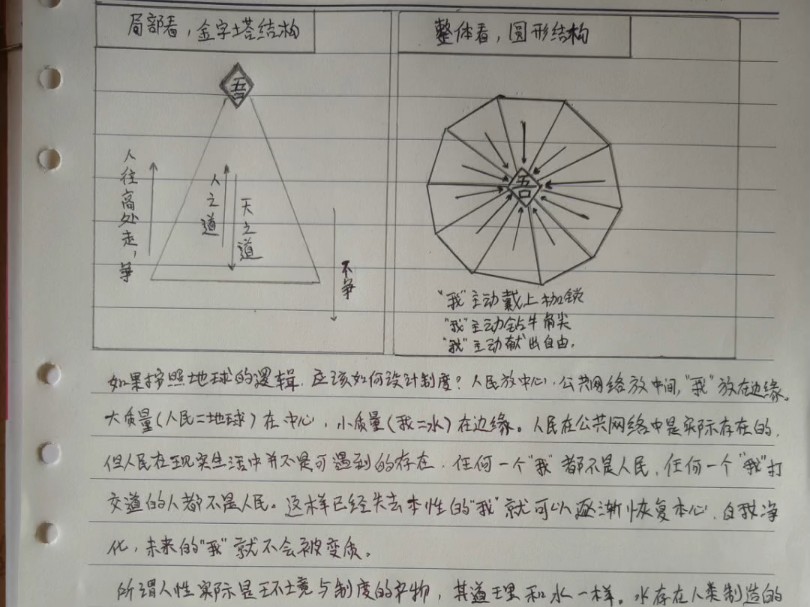 局部看，金字塔结构
整体看，圆形结构
吾
人往高处走，争
人之道
天之道
不争
吾
"我"主动戴上枷锁
"我"主动钻牛角尖
"我"主动献出自由。
如果按照地球的逻辑，应该如何设计制度？人民放中心，公共网络放中间，"我"放在边缘。
大质量（人民=地球）在中心，小质量（我=水）在边缘。人民在公共网络中是实际存在的，
但人民在现实生活中并不是可遇到的存在，任何一个"我"都不是人民，任何一个"我"打
交道的人都不是人民。这样已经失去本性的"我"就可以逐渐恢复本心，自我净
化，未来的"我"就不会被变质。
所谓人性实际是环境与制度的产物，其道理和水一样。水存在人类制造的